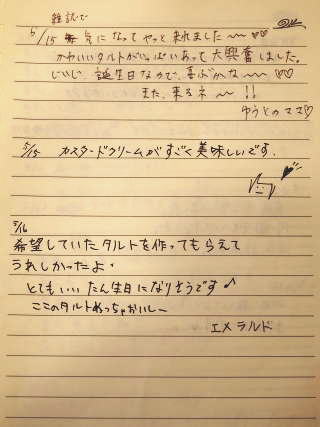 雑誌で
5/15 気になってやっと来れました〜〜♡♡
かわいいタルトがいっぱいあって大興奮しました。
じいじ、誕生日なので、喜ぶかな〜〜♡♡
また、来るネ〜!!
ゆうとのママ♡
5/15 カスタードクリームがすごく美味しいです.
5/16
希望していたタルトを作ってもらえて
うれしかったよ・
とてもいいたん生日になりそうです♪
ここのタルトめっちゃおいしー
エメラルド